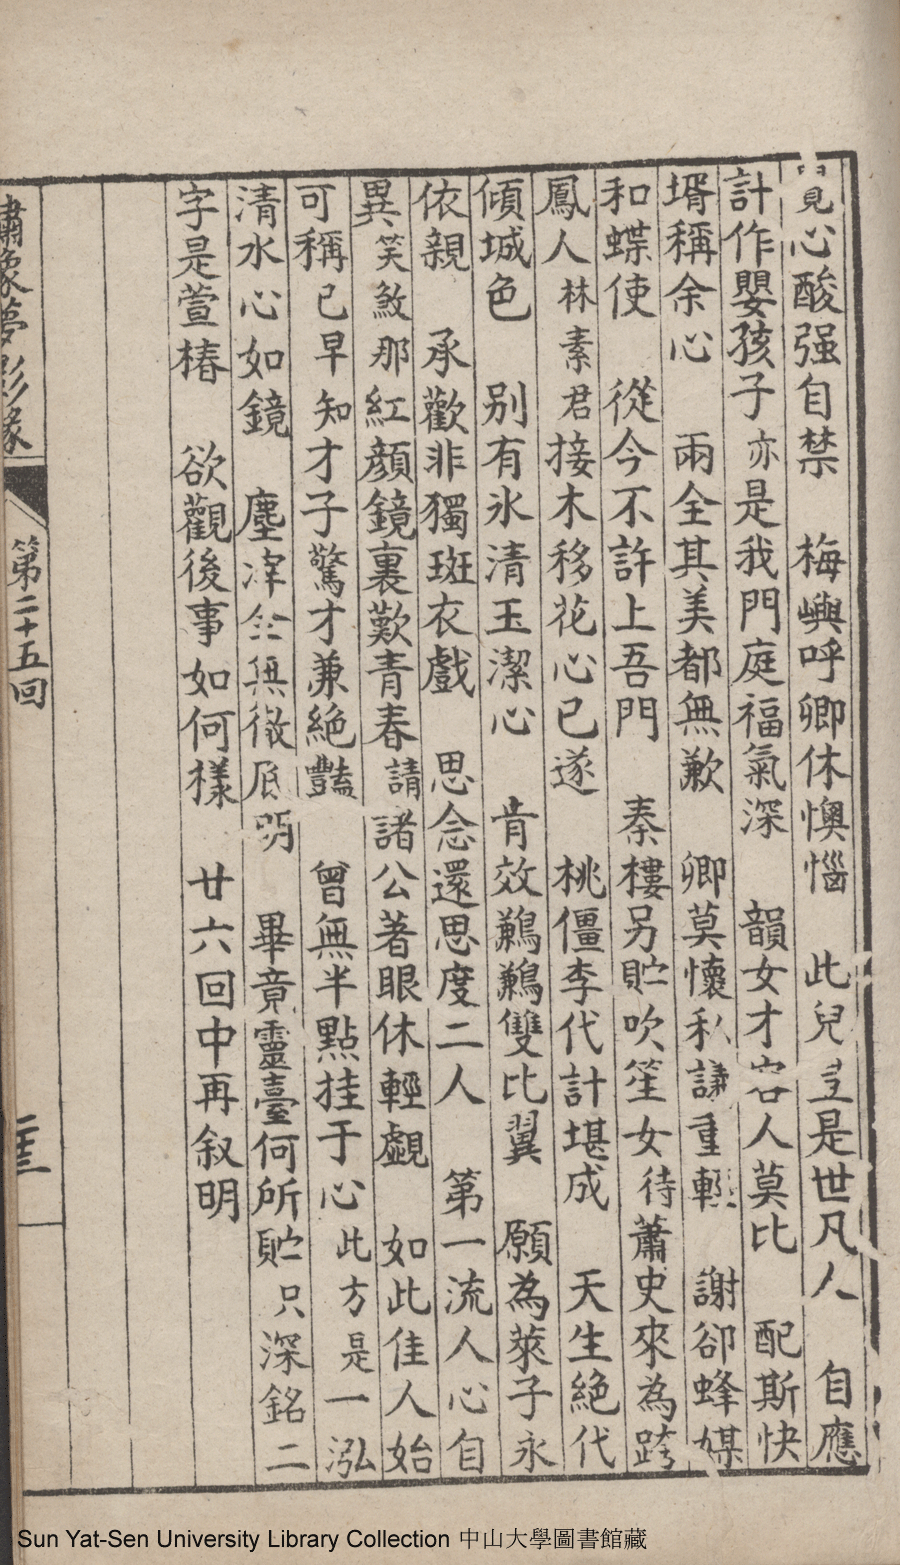 覓心酸强自禁　梅嶼呼卿休懊惱　此兒豈是世凡人　自應
計作嬰孩子亦是我門庭福氣深　韻女才容人莫比　配斯快
壻稱余心　兩全其美都無歉　卿莫懷私議重輕　謝卻蜂媒
和蝶使　從今不許上吾門　秦樓另貯吹笙女待蕭史來為跨
鳳人林素君接木移花心已遂　桃僵李代計堪成　天生絕代
傾城色　别有氷清玉潔心　肯效鶼鶼雙比翼　願為萊子永
依親　承歡非獨斑衣戲　思念還思度二人　第一流人心自
異笑煞那紅顔鏡裏歎青春請諸公著眼休輕覷　如此佳人始
可稱已早知才子驚才兼絕豔　曾無半點挂于心此方是一泓
清水心如鏡　塵滓全無徹底明　畢竟靈臺何所貯只深銘二
字是萱椿　欲觀後事如何樣　廿六回中再叙明
繡像夢影緣
第二十五回
Sun Yat-Sen University Library Collection 中山大學圖書館藏